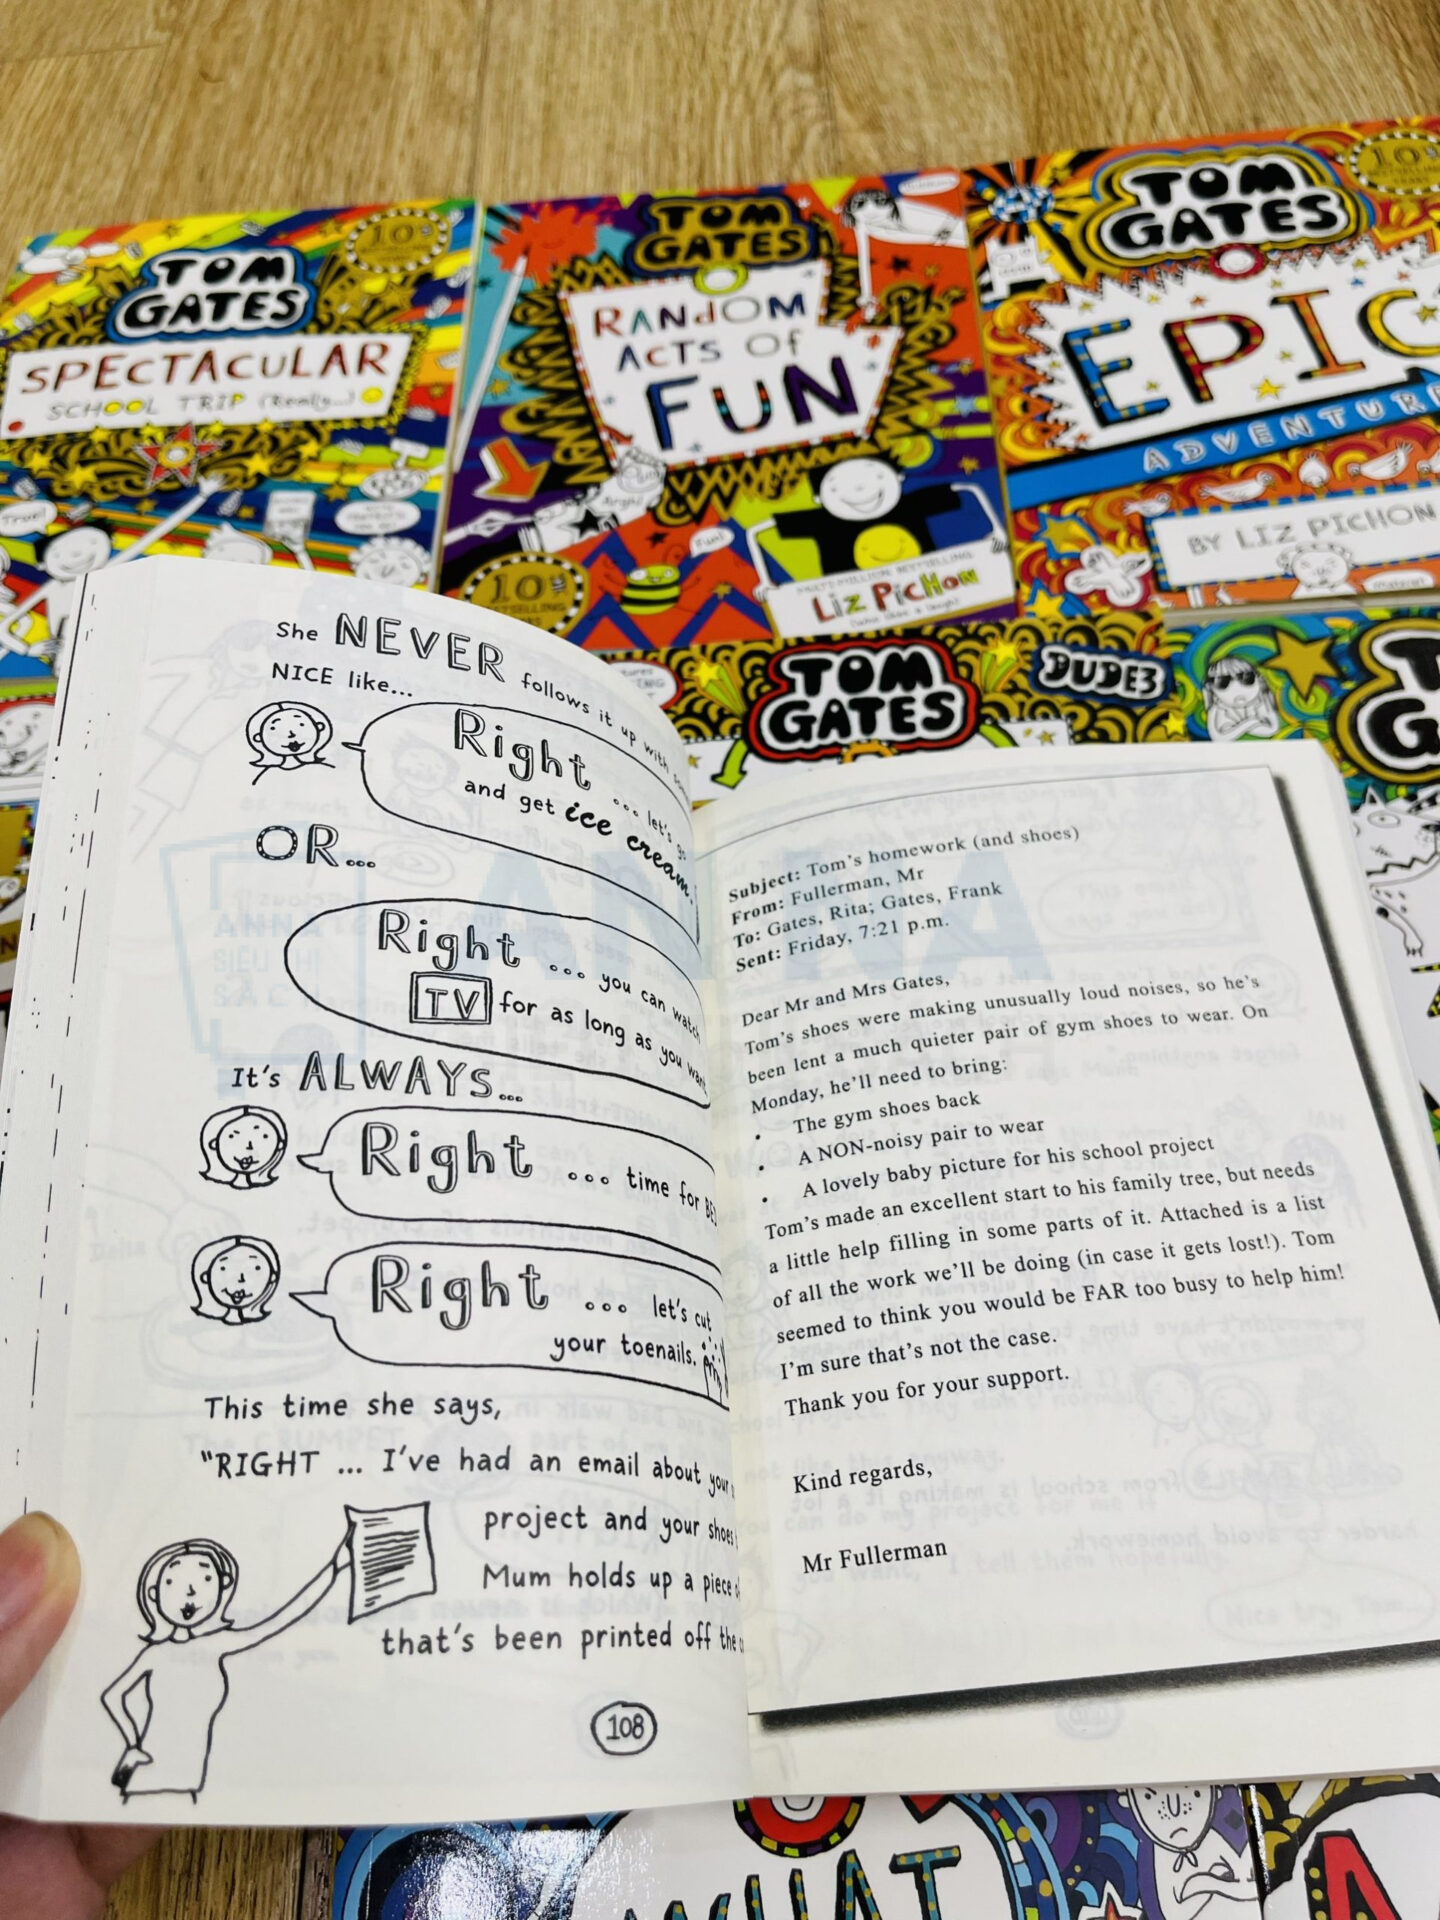 TOM
GATES
SPECTACULAR
SCHOOL TRIP (Really...)
TOM
GATES
RANDOM
ACTS OF
FUN
Fun!
MULTI-MILLION BESTSELLING
LIZ PICHON
TOM
GATES
EPIC
ADVENTURE
BY LIZ PICHON
TOM
GATES
DUDE3
She NEVER follows it up with
NICE like...
Right ... let's go
and get ice cream.
OR...
Right ... you can watch
TV for as long as you want
It's ALWAYS...
Right ... time for BED
Right ... let's cut
your toenails.
This time she says,
"RIGHT ... I've had an email about your
project and your shoes
Mum holds up a piece
that's been printed off the
108
Subject: Tom's homework (and shoes)
From: Fullerman, Mr
To: Gates, Rita; Gates, Frank
Sent: Friday, 7:21 p.m.
Dear Mr and Mrs Gates,
Tom's shoes were making unusually loud noises, so he's
been lent a much quieter pair of gym shoes to wear. On
Monday, he'll need to bring:
• The gym shoes back
• A NON-noisy pair to wear
• A lovely baby picture for his school project
Tom's made an excellent start to his family tree, but needs
a little help filling in some parts of it. Attached is a list
of all the work we'll be doing (in case it gets lost!). Tom
seemed to think you would be FAR too busy to help him!
I'm sure that's not the case.
Thank you for your support.
Kind regards,
Mr Fullerman
WHAT
ANNA